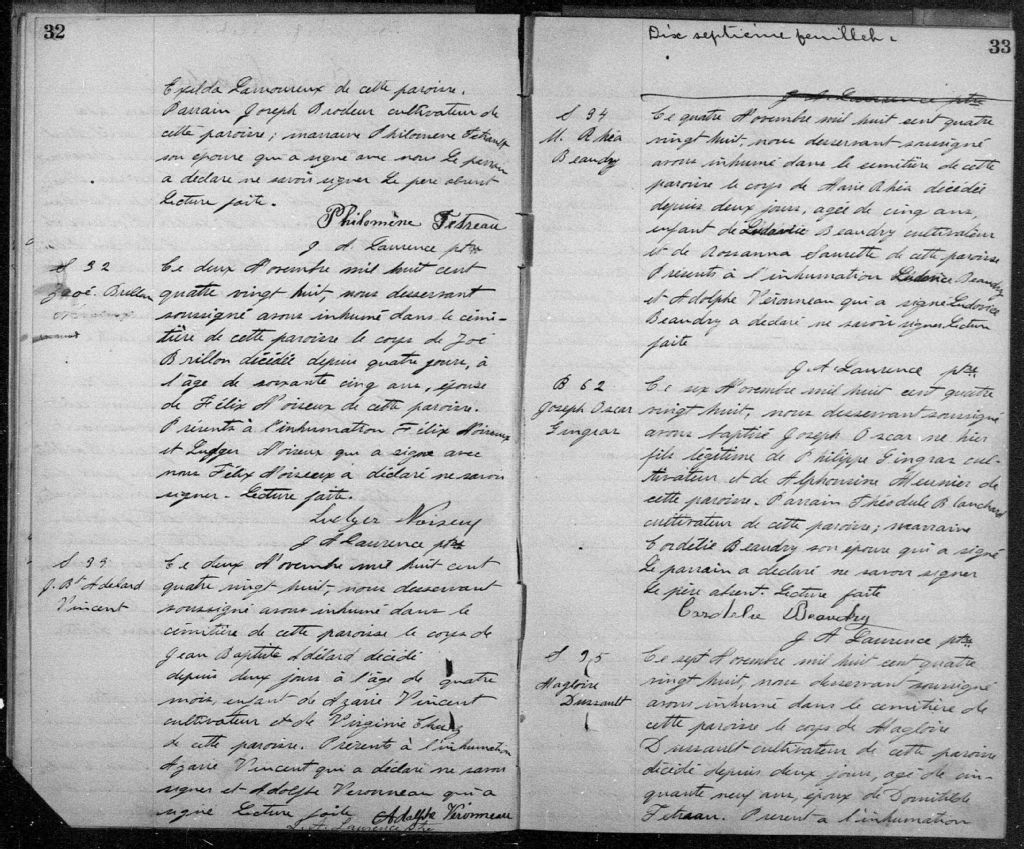 32
Exilda Lamoureux de cette paroisse.
Parrain Joseph Brodeur cultivateur de
cette paroisse; marraine Philomène Tetreault
son épouse qui a signé avec nous Le parrain
a declaré ne savoir signer Le pere absent
Lecture faite.
Philomène Tetreau
J. A. Laurence ptre
S 32
Zoé. Brillon
Ce deux Novembre mil huit cent
quatre vingt huit, nous desservant
soussigné avons inhumé dans le cimi-
tière de cette paroisse le corps de Zoé
Brillon décédée depuis quatre jours, à
l'âge de soixante cinq ans, épouse
de Félix Noiseux de cette paroisse.
Présents à l'inhumation Félix Noiseux
et Ludger Noiseux qui a signé avec
nous Félix Noiseux à déclaré ne savoir
signer. Lecture faite.
Ludger Noiseux
J A Laurence ptre
S 33
J. Bte Adelard
Vincent
Ce deux Novembre mil huit cent
quatre vingt huit, nous desservant
soussigné avons inhumé dans le
cémitière de cette paroisse le corps de
Jean Baptiste Adélard décidé
depuis deux jours à l'âge de quatre
mois, enfant de Azarie Vincent
cultivateur et de Virginie
de cette paroisse. Présents à l'inhumation
Azarie Vincent qui a déclaré ne savoir
signer et Adolphe Veronneau qui a
signé Lecture faite Adolphe Véronneau
Laurence ptre
Dix septième feuillet.
33
J A Laurence ptre
S 34
M. Rhéa
Beaudry
Ce quatre Novembre mil huit cent quatre
vingt huit, nous desservant soussigné
avons inhumé dans le cemitière de cette
paroisse le corps de Marie Rhéa décédée
depuis deux jours, agée de cinq ans,
enfant de Ludovic Beaudry cultivateur
et de Rosanna Saurette de cette paroisse
Présents à l'inhumation Ludovic Beaudry
et Adolphe Véronneau qui a signé Ludovic
Beaudry a declaré ne savoir signer Lecture
faite
J A Laurence ptre
B 62
Joseph Oscar
Gingras
Ce six Novembre mil huit cent quatre
vingt huit, nous desservant soussigné
avons baptisé Joseph Oscar né hier
fils légitime de Philippe Gingras cul-
tivateur et de Alphonsine Meunier de
cette paroisse. Parrain Théodule Blanchard
cultivateur de cette paroisse; marraine
Cordelie Beaudry son épouse qui a signé
Le parrain a déclaré ne savoir signer
Le père absent. Lecture faite
Cordelie Beaudry
J A Laurence ptre
S 35
Magloire
Dussault
Ce sept Novembre mil huit cent quatre
vingt huit, nous desservant soussigné
avons inhumé dans le cemitière de
cette paroisse le corps de Magloire
Dussault cultivateur de cette paroisse
décidé depuis deux jours, agé de cin-
quante neuf ans, époux de Domitilde
Tetreau. Present a l'inhumation